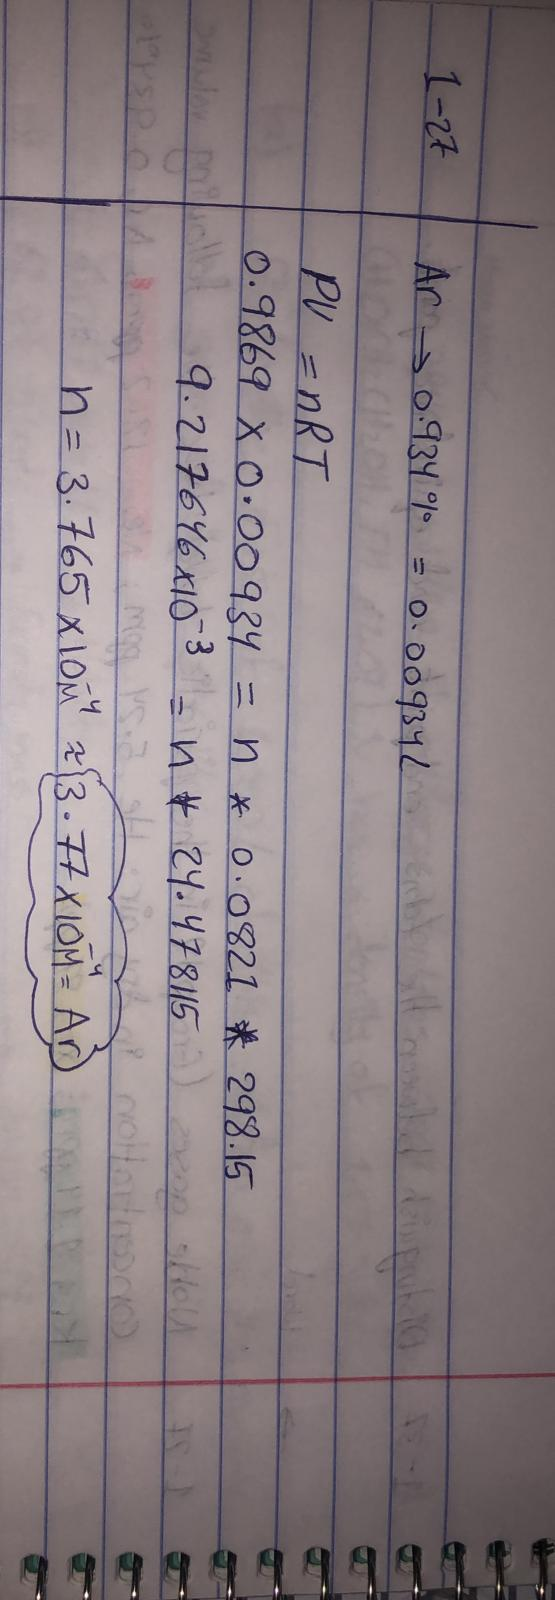 1-27
Ar → 0.934% = 0.00934L
PV = nRT
0.9869 x 0.00934 = n * 0.0821 * 298.15
9.217646x10⁻³ = n * 24.478115
n = 3.765 x10⁻⁴M ≈ 3.77x10⁻⁴M = Ar